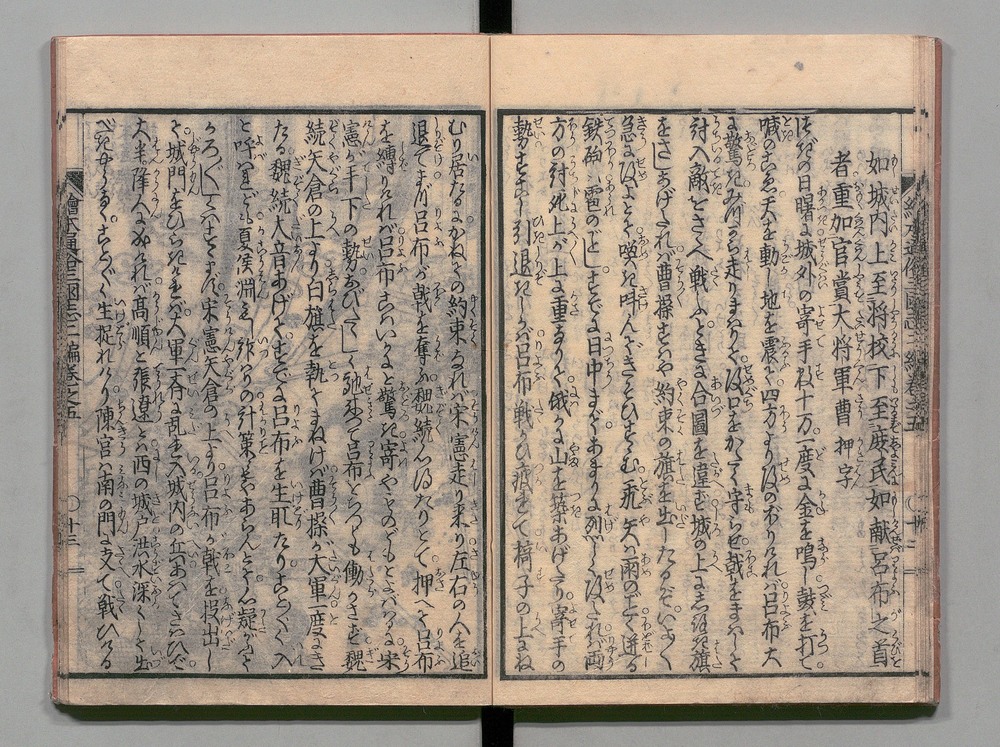 如城内上至将校下至庶民如献呂布之首
者重加官賞大将軍曹 押字
次の日曙に城外の寄手数十万一度に金を鳴し鼓を打て
喊のこゑ天を動し地を震して四方より攻のぼりければ呂布大
に驚きみづから走りまはりて攻口をかため守らせ戟をまはして
討入敵をさゝへ戦ふときに合圖を違ず城の上に
をさしあげければ曹操すはや約束の旗を出したるぞいさぎよく
急に攻よとて喚き叫んでぞすゝむ飛矢は雨の如く迸る
鉄砲は雹のごとしすでに日中まであまりに烈しく攻ければ両
方の討死上が上に重りて俄に山を築あげたり寄手の
勢すこし引退きしかば呂布戦ひ疲れて椅子の上にね
むり居たるにかねての約束なれば宋憲走り来り左右の人を追
退てまづ呂布が戟を奪ふ魏続心得たりとて押へて呂布
を縛りければ呂布こはいかにと驚き寄やものどもとよばゝる宋
憲が手下の勢馳来つて呂布をちつとも働かさず魏
続矢倉の上より白旗を執てまねけば曹操が大軍一度にき
たる魏続大音あげてすでに呂布を生取たりことごとく入
と呼はれども夏侯淵これ詐りの計策にてあらんとて
宋憲矢倉の上より呂布が戟を投出し
て城門をひらきければ大軍一斉に乱れ入城内の兵
大半降人になりければ高順と張遼とは西の城戸洪水深くして出
べき ことごとく生捉れけり陳宮は南の門に支て戦ひける
繪本通俗三國志二編巻之五
繪本通俗三國志二編巻之五
十三